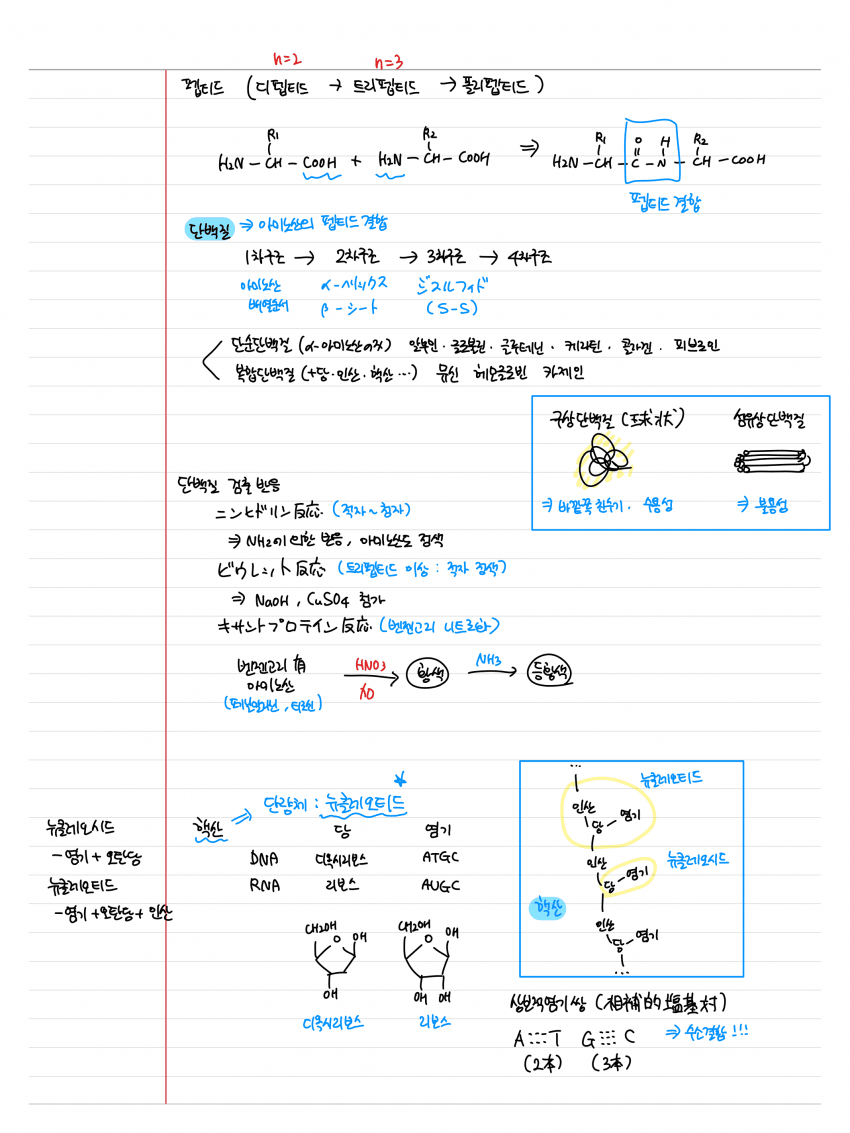 n=2 n=3
펩티드 (디펩티드 → 트리펩티드 → 폴리펩티드)
R1 R2 R1 O H R2
H2N - CH - COOH + H2N - CH - COOH ⇒ H2N - CH - C - N - CH - COOH
펩티드 결합
단백질 ⇒ 아미노산의 펩티드 결합
1차구조 → 2차구조 → 3차구조 → 4차구조
아미노산 α-ヘリックス ジスルフィド
배열순서 β-シート (S-S)
단순단백질 (α-아미노산으로) 알부민 · 글로불린 · 글루테닌 · 케라틴 · 콜라겐 · 피브로인
복합단백질 (+당·인산·핵산…) 뮤신 헤모글로빈 카제인
구상단백질 (球状) 섬유상단백질
⇒ 바깥쪽 친수기, 수용성 ⇒ 불용성
단백질 검출 반응
ニンヒドリン反応 (적자~청자)
⇒ NH2에 의한 반응, 아미노산도 검색
ビウレット反応 (트리펩티드 이상 : 적자 정색)
⇒ NaOH, CuSO4 첨가
キサントプロテイン反応 (벤젠고리 니트로화)
벤젠고리 有 HNO3 황색 NH3 등황색
아미노산
(페닐알라닌, 티로신)
핵산 ⇒ 단량체 : 뉴클레오티드
당 염기
DNA 디옥시리보스 ATGC
RNA 리보스 AUGC
CH2OH O OH CH2OH O OH
OH OH OH
디옥시리보스 리보스
뉴클레오시드
- 염기 + 오탄당
뉴클레오티드
- 염기 + 오탄당 + 인산
…
뉴클레오티드
인산
당 - 염기
인산
뉴클레오시드
당 - 염기
핵산
인산
당 - 염기
…
상보적염기쌍 (相補的塩基対)
A T G C ⇒ 수소결합!!!
(2本) (3本)